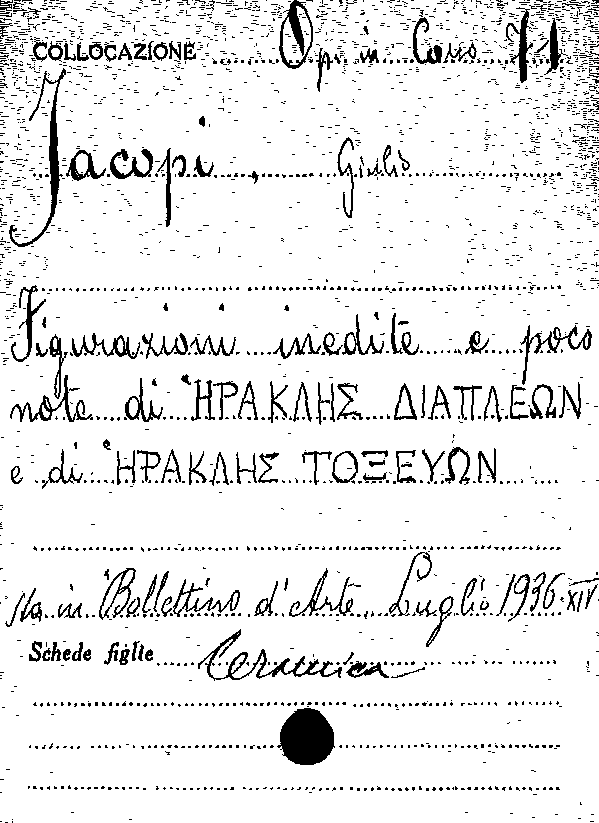 COLLOCAZIONE Op. in Caso 71
Jacopi, Giulio
Figurazioni inedite e poco
note di ῾ΗΡΑΚΛΗΣ ΔΙΑΠΛΕΩΝ
e di ῾ΗΡΑΚΛΗΣ ΤΟΞΕΥΩΝ
Sta in "Bollettino d'Arte. Luglio 1936-XIV
Schede figlie Ceramica